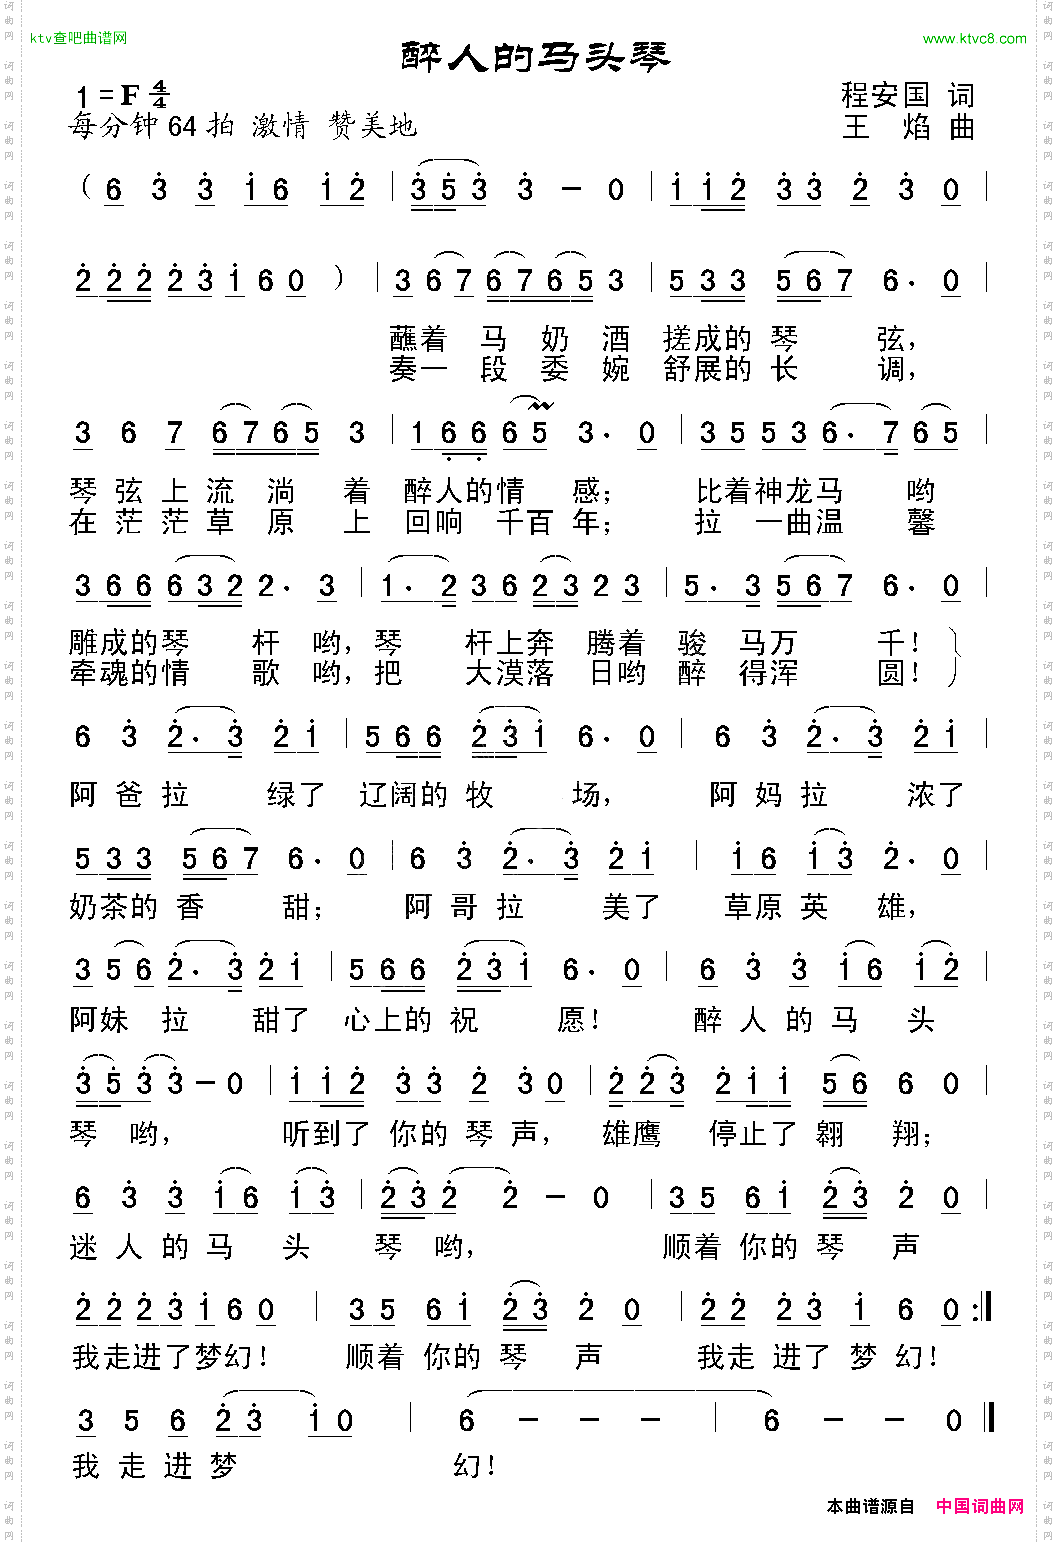 ktv查吧曲谱网
www.ktvc8.com
醉人的马头琴
1=F 4/4
程安国 词
每分钟64拍 激情 赞美地
王 焰 曲
( 6 3 3 1 6 1 2 | 3 5 3 3 - 0 | 1 1 2 3 3 2 3 0 |
2 2 2 2 3 1 6 0 ) | 3 6 7 6 7 6 5 3 | 5 3 3 5 6 7 6· 0 |
蘸着 马 奶 酒 搓成的 琴 弦,
奏一 段 委 婉 舒展的 长 调,
3 6 7 6 7 6 5 3 | 1 6 6 6 5 3· 0 | 3 5 5 3 6· 7 6 5 |
琴 弦 上 流 淌 着 醉人的情 感; 比着神龙马 哟
在 茫 茫 草 原 上 回响 千百 年; 拉 一曲温 馨
3 6 6 6 3 2 2· 3 | 1· 2 3 6 2 3 2 3 | 5· 3 5 6 7 6· 0 |
雕成的琴 杆 哟,琴 杆上奔 腾着 骏 马万 千!
牵魂的情 歌 哟,把 大漠落 日哟 醉 得浑 圆!
6 3 2· 3 2 1 | 5 6 6 2 3 1 6· 0 | 6 3 2· 3 2 1 |
阿 爸 拉 绿了 辽阔的 牧 场, 阿 妈 拉 浓了
5 3 3 5 6 7 6· 0 | 6 3 2· 3 2 1 | 1 6 1 3 2· 0 |
奶茶的 香 甜; 阿 哥 拉 美了 草原 英 雄,
3 5 6 2· 3 2 1 | 5 6 6 2 3 1 6· 0 | 6 3 3 1 6 1 2 |
阿妹 拉 甜了 心上的 祝 愿! 醉 人 的 马 头
3 5 3 3 - 0 | 1 1 2 3 3 2 3 0 | 2 2 3 2 1 1 5 6 6 0 |
琴 哟, 听到了 你的 琴 声, 雄鹰 停止了 翱 翔;
6 3 3 1 6 1 3 | 2 3 2 2 - 0 | 3 5 6 1 2 3 2 0 |
迷 人 的 马 头 琴 哟, 顺着 你的 琴 声
2 2 2 3 1 6 0 | 3 5 6 1 2 3 2 0 | 2 2 2 3 1 6 0 :|
我走进了梦幻! 顺着 你的 琴 声 我走 进了 梦 幻!
3 5 6 2 3 1 0 | 6 - - - | 6 - - 0 |
我 走 进 梦 幻!
本曲谱源自 中国词曲网